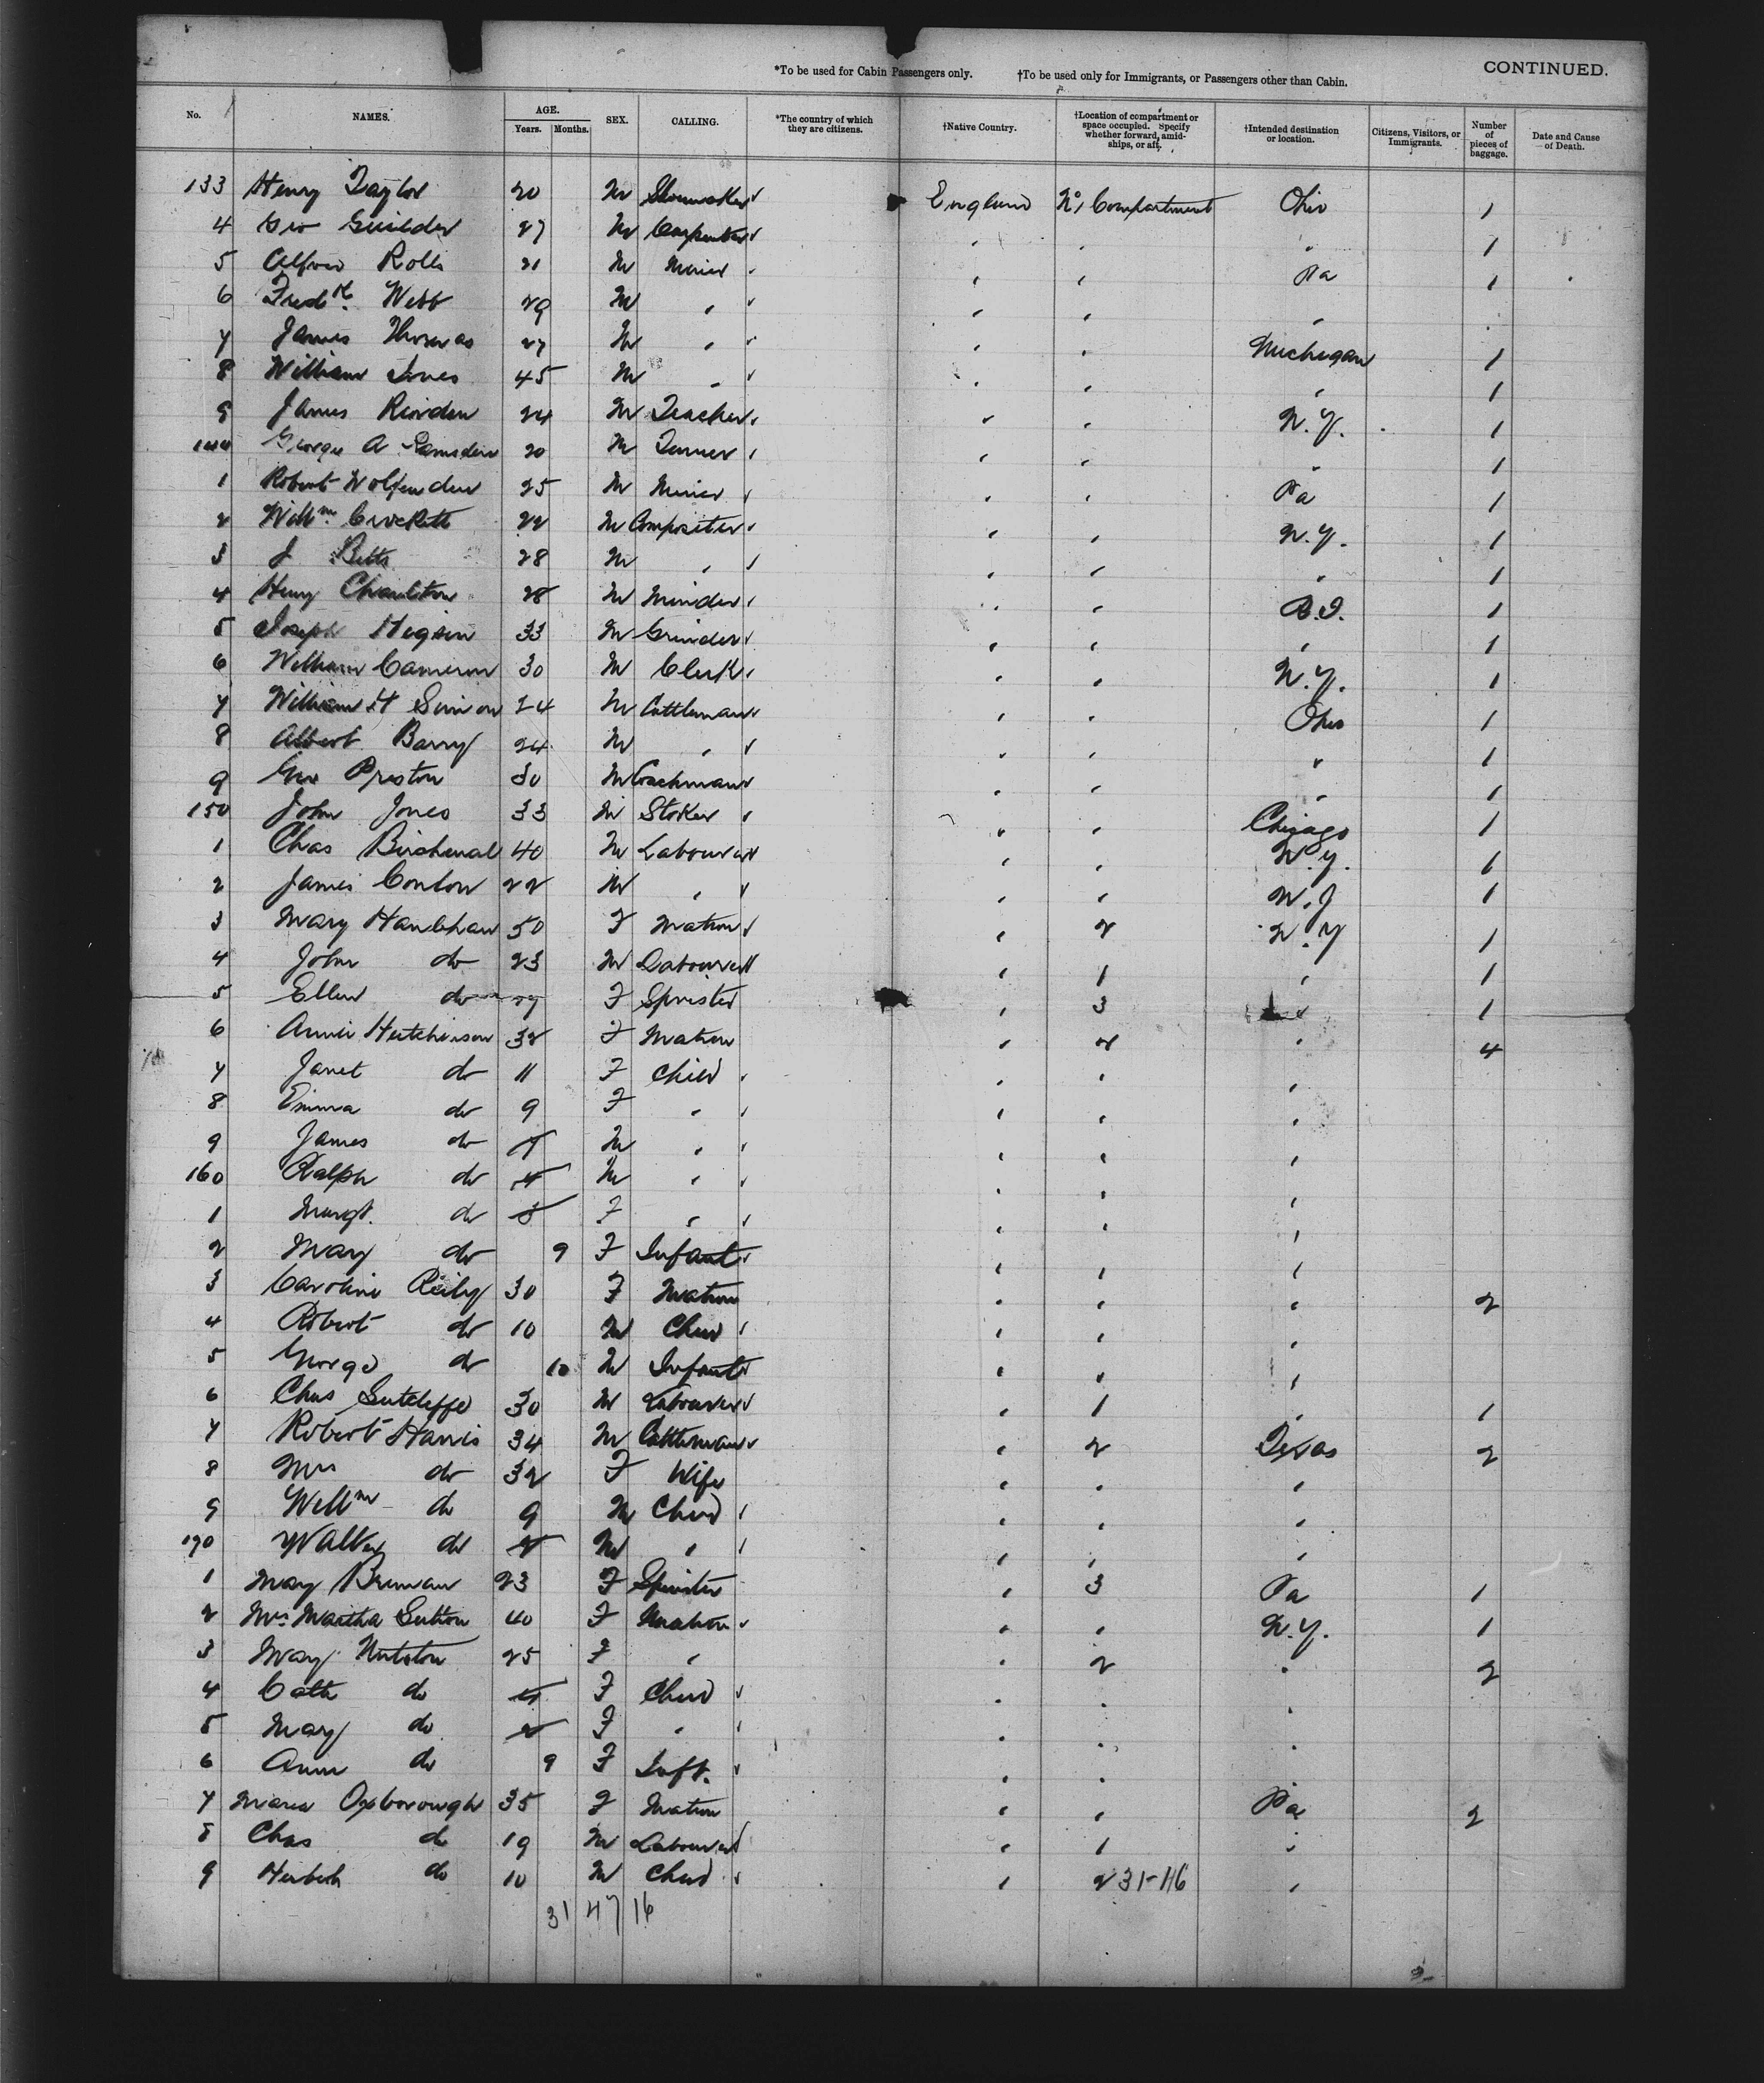 CONTINUED.
*To be used for Cabin Passengers only. †To be used only for Immigrants, or Passengers other than Cabin.
No. NAMES. AGE. Years. Months. SEX. CALLING. *The country of which they are citizens. †Native Country. †Location of compartment or space occupied. Specify whether forward, amidships, or aft. †Intended destination or location. Citizens, Visitors, or Immigrants. Number of pieces of baggage. Date and Cause of Death.
133 Henry Taylor 20 M Shoemaker England No 1 Compartment Ohio 1
4 Geo Guilder 27 M Carpenter " " " 1
5 Alfred Rolls 21 M Miner " " Pa 1
6 Fredk. Webb 29 M " " " "
7 James Thomas 27 M " " " Michegan 1
8 William Jones 45 M " " " " 1
9 James Riorden 24 M Teacher " " N.Y. 1
140 George A Ramsden 20 M Turner " " " 1
1 Robert Wolfenden 25 M Miner " " Pa 1
2 Willm Crockett 22 M Compositer " " N.Y. 1
3 J Betts 28 M " " " " 1
4 Henry Charlton 28 M Minder " " R.I. 1
5 Joseph Higson 33 M Grinder " " " 1
6 William Cameron 30 M Clerk " " N.Y. 1
7 William H Simion 24 M Cattleman " " Ohio 1
8 Albert Barry 24 M " " " " 1
9 Geo Preston 30 M Coachman " " " 1
150 John Jones 33 M Stoker " " Chicago 1
1 Chas Birchenal 40 M Labourer " " N.Y. 1
2 James Conlon 22 M " " " N.J 1
3 Mary Hanlehan 50 F Matron " 2 N.Y 1
4 John do 23 M Labourer " 1 " 1
5 Ellen do F Spinster " 3 " 1
6 Annie Hutchinson 32 F Matron " 2 " 4
7 Janet do 11 F Child " " "
8 Emma do 9 F " " " "
9 James do 7 M " " " "
160 Ralph do 4 M " " " "
1 Margt. do 3 F " " " "
2 Mary do 9 F Infant " " "
3 Caroline Reily 30 F Matron " " " 2
4 Robert do 10 M Child " " "
5 George do 10 M Infant " " "
6 Chas Sutcliffe 30 M Labourer " 1 " 1
7 Robert Harris 34 M Cattleman " 2 Texas 2
8 Mrs do 32 F Wife " " "
9 Willm do 9 M Child " " "
170 Walter do M " " " "
1 Mary Brennan 23 F Spinster " 3 Pa 1
2 Mrs. Martha Sutton 40 F Matron " " N.Y. 1
3 Mary 25 F " " 2 " 2
4 Cath do 4 F Child " " "
5 Mary do 2 F " " " "
6 Annie do 9 F Inft. " " "
7 Maria Oxborough 35 F Matron " " Pa 2
8 Chas do 19 M Labourer " 1 "
9 Herbert do 10 M Child " 2 31-116 "
31 47 16